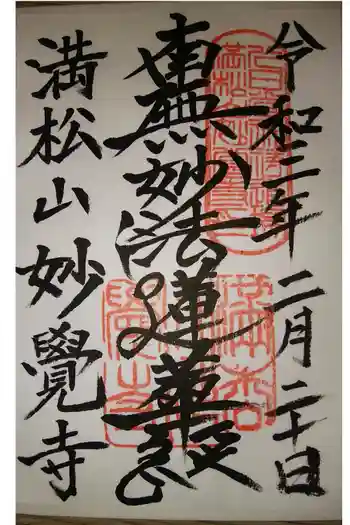 令和三年 二月二十日
南無妙法蓮華経
満松山 妙覺寺